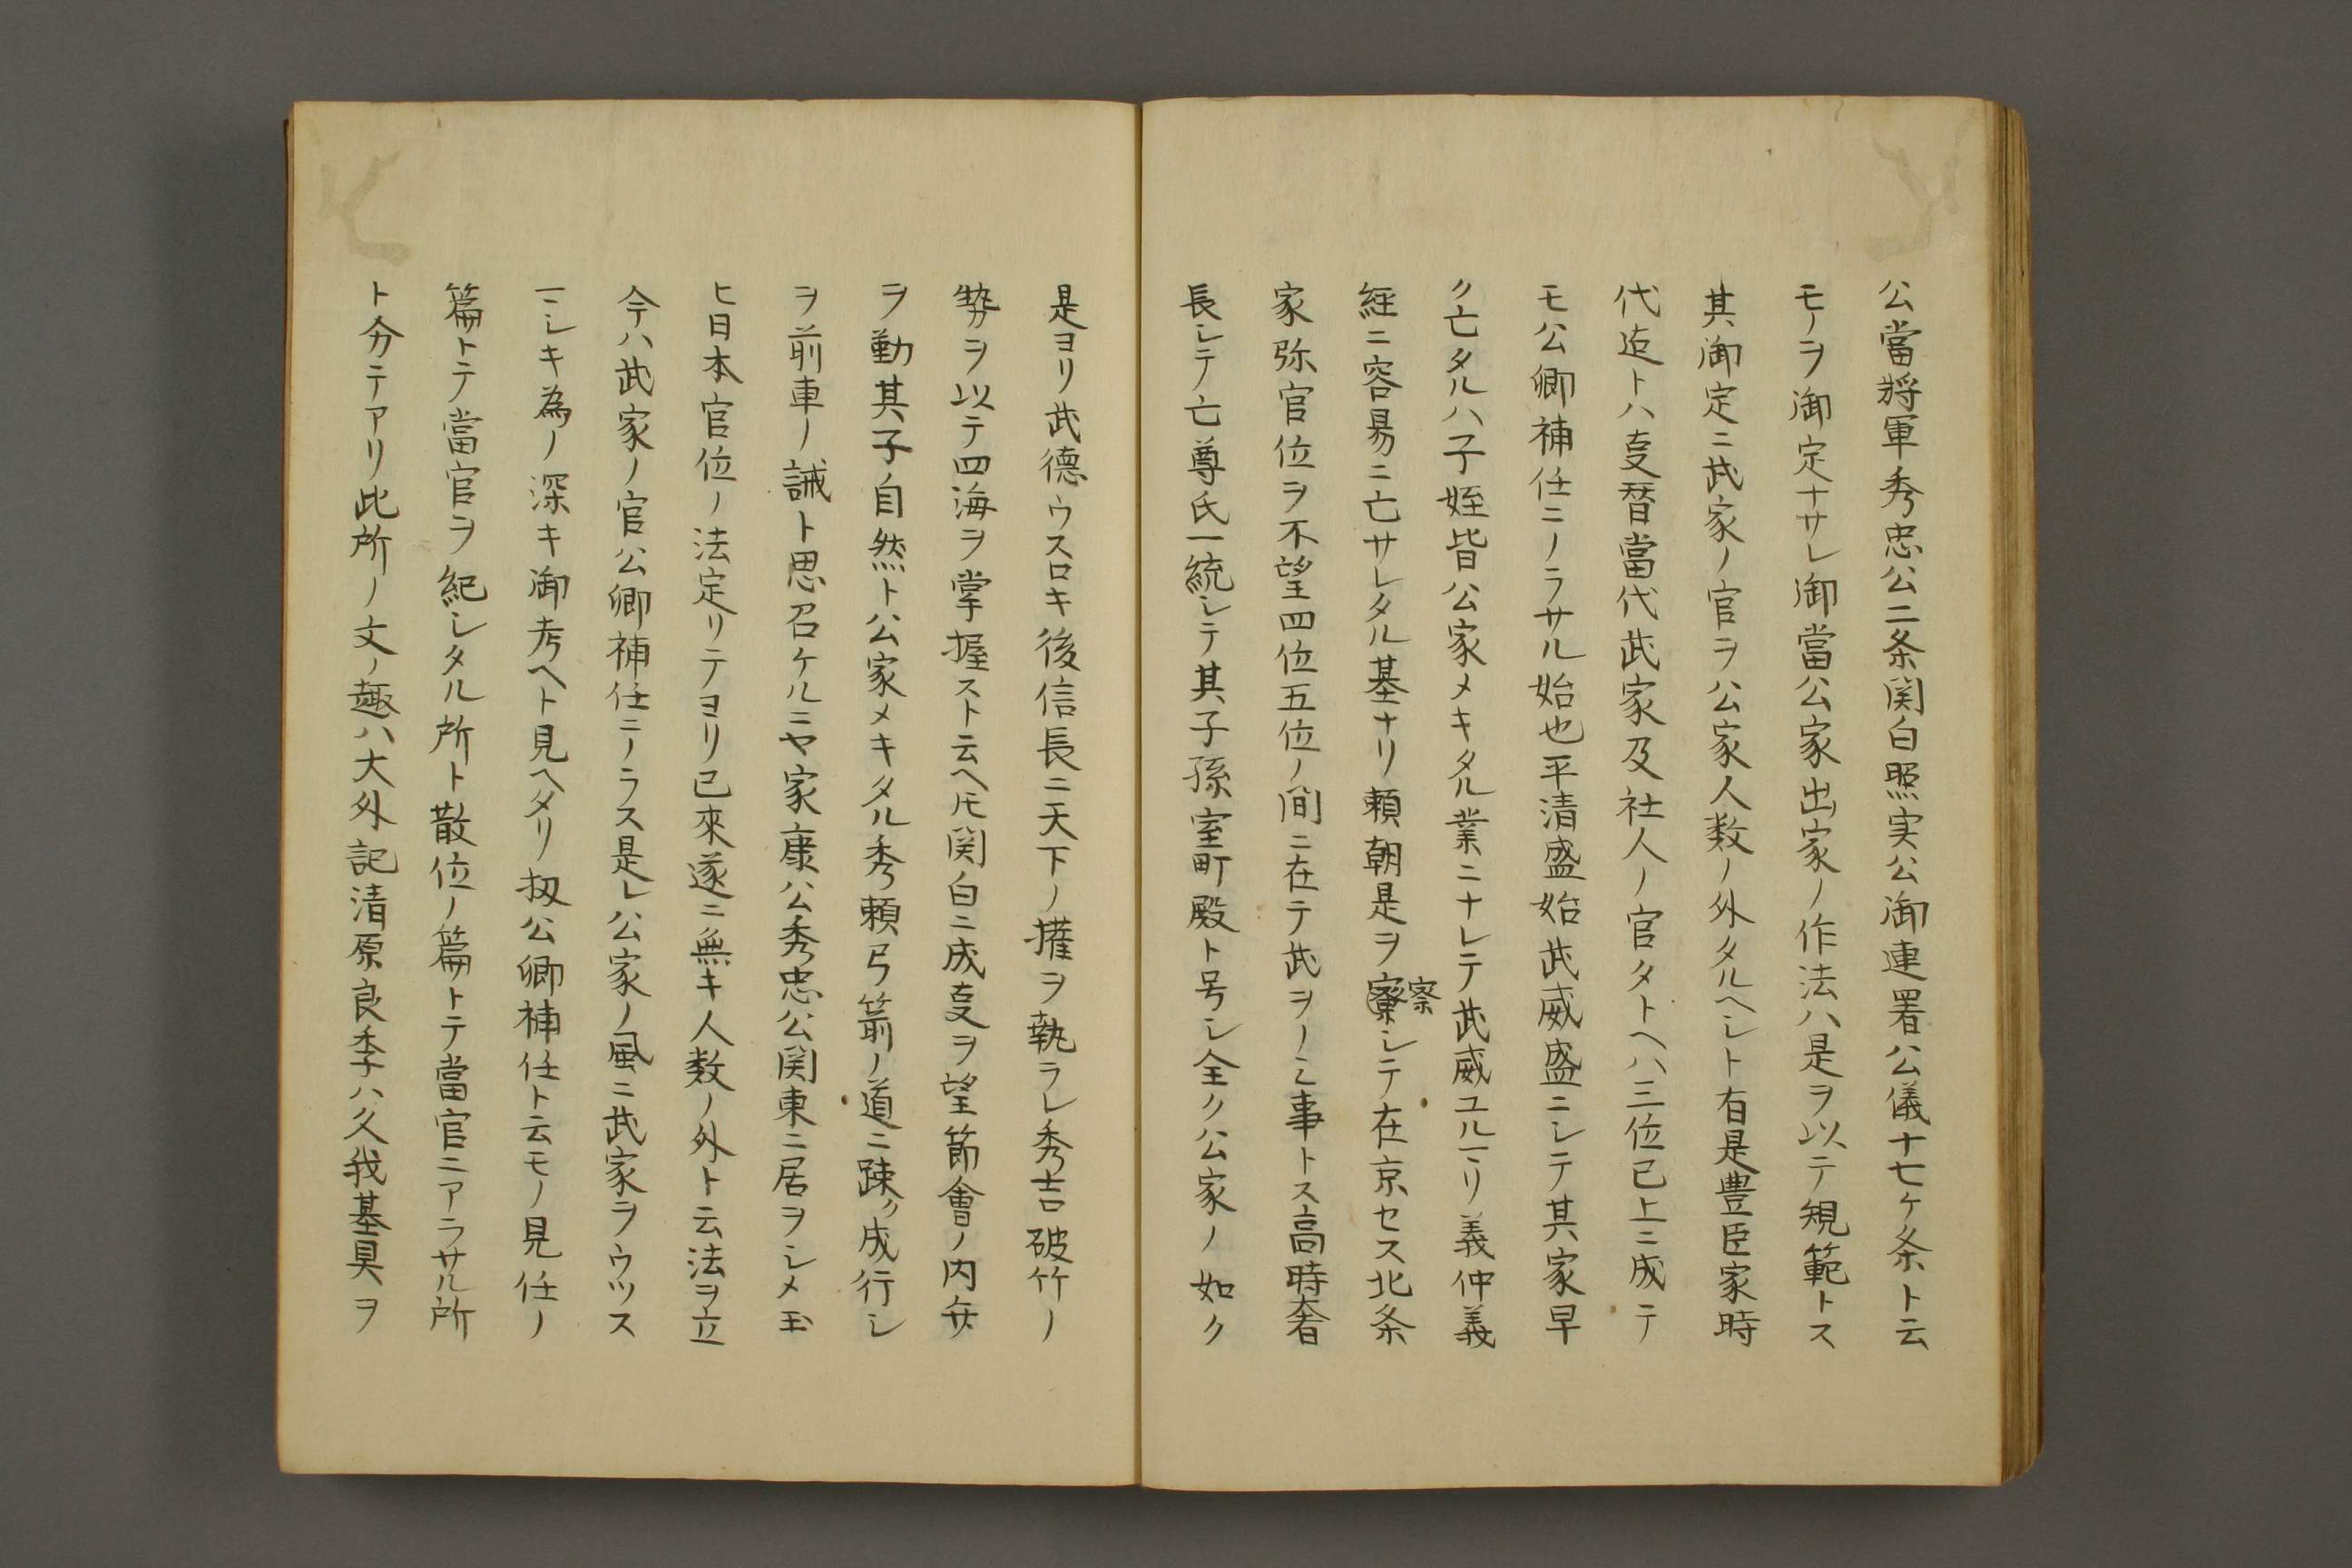 公當将軍秀忠公二条関白照実公御連署公儀十七ケ条ト云
モノヲ御定ナサレ御當公家出家ノ作法ハ是ヲ以テ規範トス
其御定ニ武家ノ官ヲ公家人数ノ外タルヘシト有是豊臣家時
代迄トハ変替當代武家及社人ノ官タトヘハ三位已上ニ成テ
モ公卿補任ニノラサル始也平清盛始武威盛ニシテ其家早
ク亡タルハ子姪皆公家メキタル業ニナレテ武威ユルマリ義仲義
経ニ容易ニ亡サレタル基ナリ頼朝是ヲ察シテ在京セス北条
家弥官位ヲ不望四位五位ノ間ニ在テ武ヲノミ事トス高時奢
長シテ亡尊氏一統シテ其子孫室町殿ト号シ全ク公家ノ如ク
是ヨリ武德ウスロキ後信長ニ天下ノ権ヲ執ラレ秀吉破竹ノ
勢ヲ以テ四海ヲ掌握スト云ヘ𪜈関白ニ成変ヲ望節會ノ内弁
ヲ勤其子自然ト公家メキタル秀頼弓箭ノ道ニ疎ク成行シ
ヲ前車ノ誡ト思召ケルニヤ家康公秀忠公関東ニ居ヲシメ玉
ヒ日本官位ノ法定リテヨリ已來遂ニ無キ人数ノ外ト云法ヲ立
今ハ武家ノ官公卿補任ニノラス是レ公家ノ風ニ武家ヲウツス
マシキ為ノ深キ御考ヘト見ヘタリ扨公卿補任ト云モノ見任ノ
篇トテ當官ヲ紀シタル所ト散位ノ篇トテ當官ニアラサル所
ト分テアリ此所ノ文ノ趣ハ大外記清原良季ハ久我基具ヲ